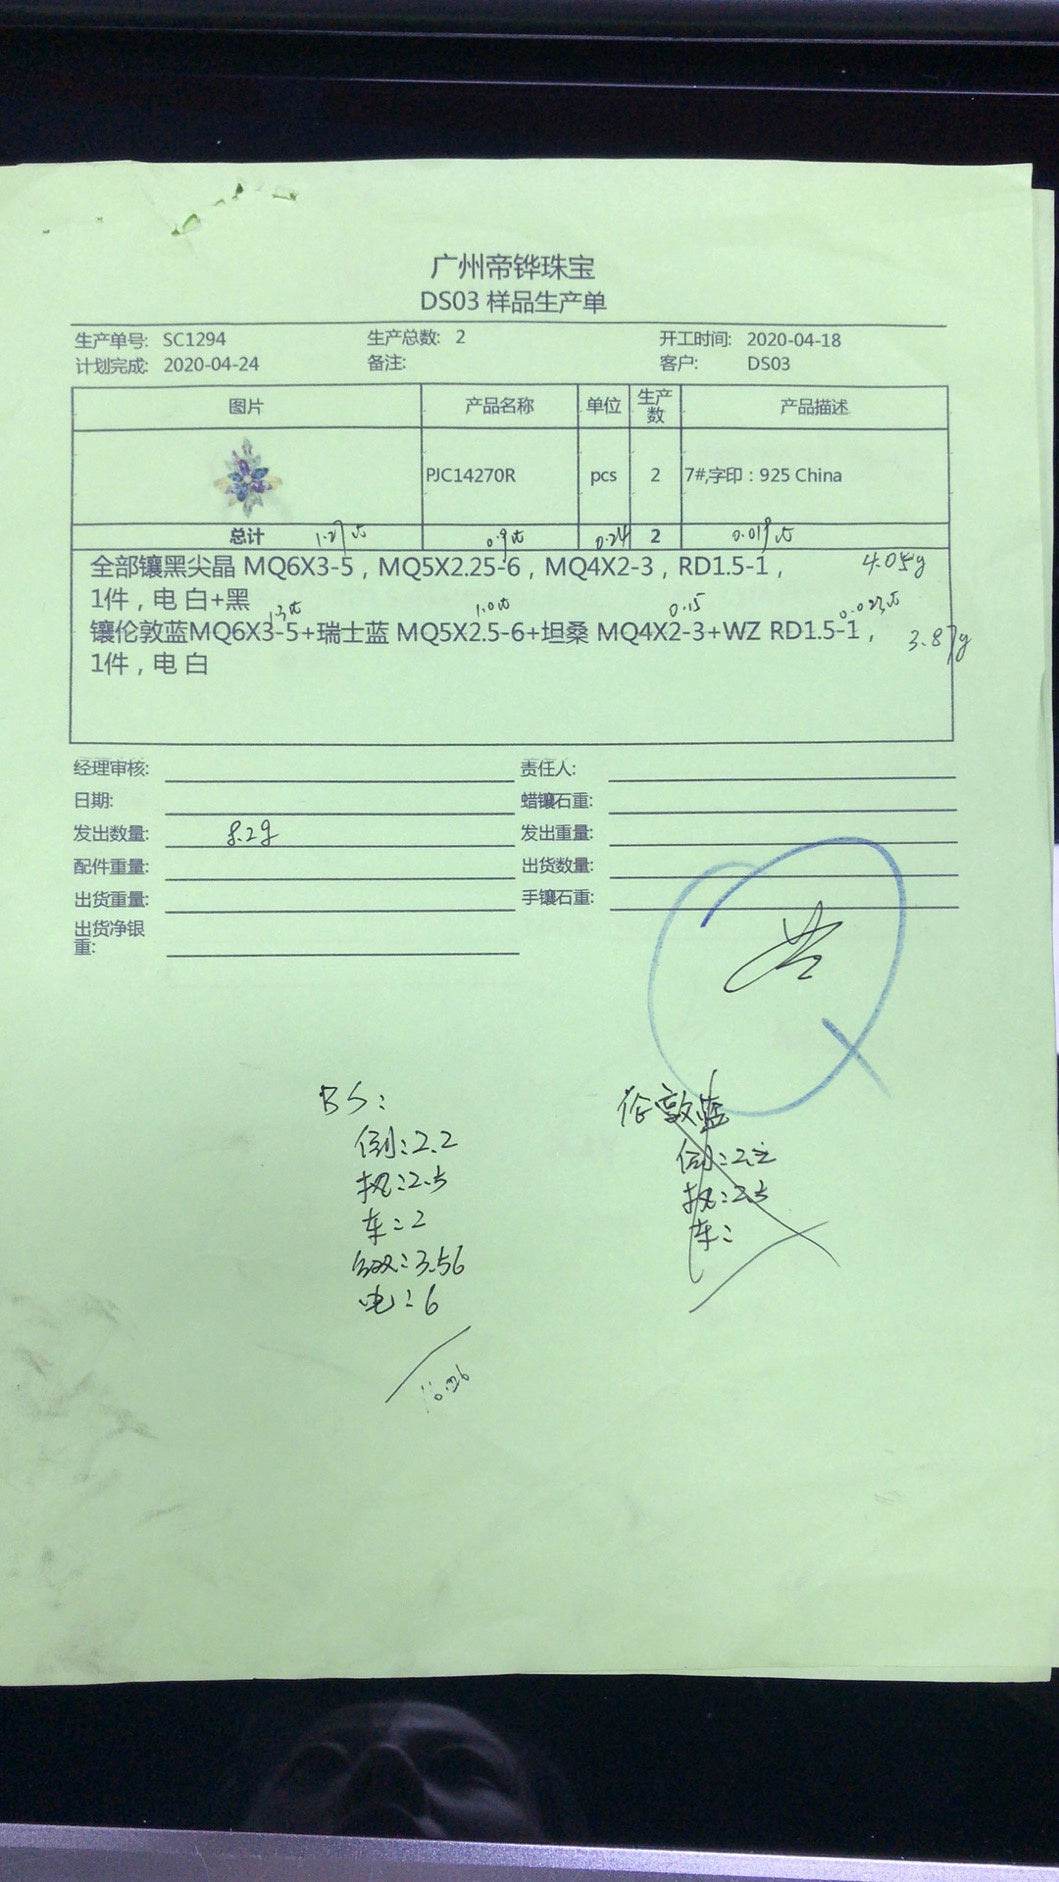 广州帝铧珠宝
DS03 样品生产单
生产单号: SC1294 生产总数: 2 开工时间: 2020-04-18
计划完成: 2020-04-24 备注: 客户: DS03
图片 产品名称 单位 生产数 产品描述
PJC14270R pcs 2 7#,字印：925 China
总计 1.27ct 0.9ct 0.24 2 0.019ct
全部镶黑尖晶 MQ6X3-5，MQ5X2.25-6，MQ4X2-3，RD1.5-1， 4.05g
1件，电 白+黑
1.3ct 1.0ct 0.15 0.023ct
镶伦敦蓝MQ6X3-5+瑞士蓝 MQ5X2.5-6+坦桑 MQ4X2-3+WZ RD1.5-1， 3.87g
1件，电 白
经理审核: 责任人:
日期: 蜡镶石重:
发出数量: 8.2g 发出重量:
配件重量: 出货数量:
出货重量: 手镶石重:
出货净银重:
BS: 伦敦蓝
倒:2.2 倒:2.2
执:2.5 执:2.5
车:2 车:
3.56
电:6